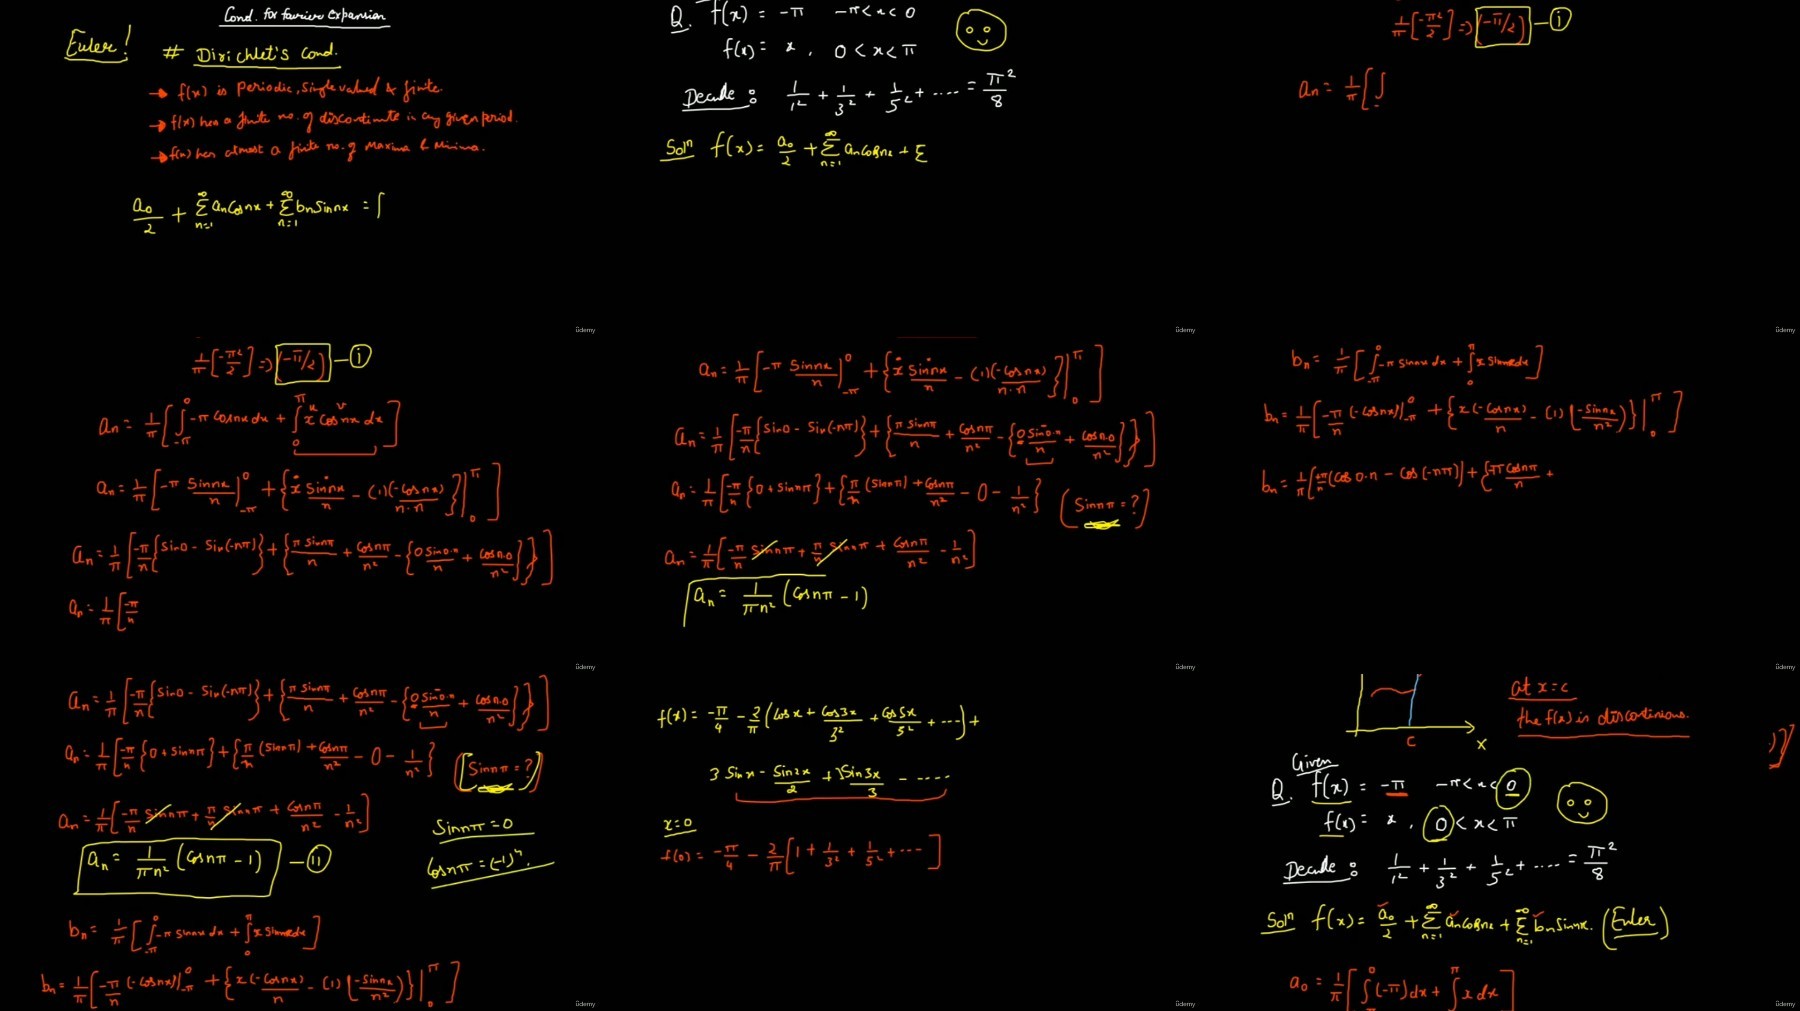 Cond. for fourier Expansion
Euler!
# Dirichlet's Cond.
→ f(x) is Periodic, Single valued & finite.
→ f(x) has a finite no. of discontinute in any given period.
→ f(x) has atmost a finite no. of Maxima & Minima.
a₀/2 + ∑_{n=1}^{∞} aₙ Cos nx + ∑_{n=1}^{∞} bₙ Sin nx = ∫
Q. f(x) = -π   -π < x < 0
f(x) = x , 0 < x < π
: 1/1² + 1/3² + 1/5² + .... = π²/8
Solⁿ f(x) = a₀/2 + ∑_{n=1}^{∞} aₙ cos nx + Σ
1/π [-π²/2] => (-π/2) — (i)
aₙ = 1/π [∫
ûdemy
ûdemy
ûdemy
1/π [-π²/2] => (-π/2) — (i)
aₙ = 1/π [∫_{-π}^{0} -π Cos nx dx + ∫_{0}^{π} x Cos nx dx]
aₙ = 1/π [-π Sin nx/n |_{-π}^{0} + {x Sin nx/n - (1)(-Cos nx)/n·n}|_{0}^{π}]
aₙ = 1/π [-π/n {sin 0 - Sin(-nπ)} + {π Sin nπ/n + Cos nπ/n² - {0 Sin 0·n/n + Cos n·0/n²}}]
aₙ = 1/π [-π/n
aₙ = 1/π [-π Sin nx/n |_{-π}^{0} + {x Sin nx/n - (1)(-Cos nx)/n·n}|_{0}^{π}]
aₙ = 1/π [-π/n {sin 0 - Sin(-nπ)} + {π Sin nπ/n + Cos nπ/n² - {0 Sin 0·n/n + Cos n·0/n²}}]
aₙ = 1/π [-π/n {0 + Sin nπ} + {π/n (Sin nπ) + Cos nπ/n² - 0 - 1/n²}   (Sin nπ = ?)
aₙ = 1/π [-π/n Sin nπ + π/n Sin nπ + Cos nπ/n² - 1/n²]
aₙ = 1/πn² (Cos nπ - 1)
bₙ = 1/π [∫_{-π}^{0} -π sin nx dx + ∫_{0}^{π} x sin nx dx]
bₙ = 1/π [-π/n (-Cos nx)|_{-π}^{0} + {x(-Cos nx)/n - (1)(-Sin nx/n²)}|_{0}^{π}]
bₙ = 1/π [+π/n (Cos 0·n - Cos(-nπ)] + {-π Cos nπ/n +
ûdemy
ûdemy
ûdemy
aₙ = 1/π [-π/n {sin 0 - Sin(-nπ)} + {π Sin nπ/n + Cos nπ/n² - {0 Sin 0·n/n + Cos n·0/n²}}]
aₙ = 1/π [-π/n {0 + Sin nπ} + {π/n (Sin nπ) + Cos nπ/n² - 0 - 1/n²}   [Sin nπ = ?]
aₙ = 1/π [-π/n Sin nπ + π/n Sin nπ + Cos nπ/n² - 1/n²]
Sin nπ = 0
aₙ = 1/πn² (Cos nπ - 1) — (ii)
Cos nπ = (-1)ⁿ.
bₙ = 1/π [∫_{-π}^{0} -π sin nx dx + ∫_{0}^{π} x sin nx dx]
bₙ = 1/π [-π/n (-Cos nx)|_{-π}^{0} + {x(-Cos nx)/n - (1)(-Sin nx/n²)}|_{0}^{π}]
f(x) = -π/4 - 2/π (Cos x + Cos 3x/3² + Cos 5x/5² + ...) +
3 Sin x - Sin 2x/2 + 3 Sin 3x/3 - .....
x=0
f(0) = -π/4 - 2/π [1 + 1/3² + 1/5² + ...]
C
x
at x=c
the f(x) is discontinious.
Given
Q. f(x) = -π   -π < x < 0
f(x) = x , 0 < x < π
: 1/1² + 1/3² + 1/5² + .... = π²/8
Solⁿ f(x) = a₀/2 + ∑_{n=1}^{∞} aₙ cos nx + ∑_{n=1}^{∞} bₙ sin nx. (Euler)
a₀ = 1/π [∫_{-π}^{0} (-π) dx + ∫^{π} x dx]
ûdemy
ûdemy
ûdemy